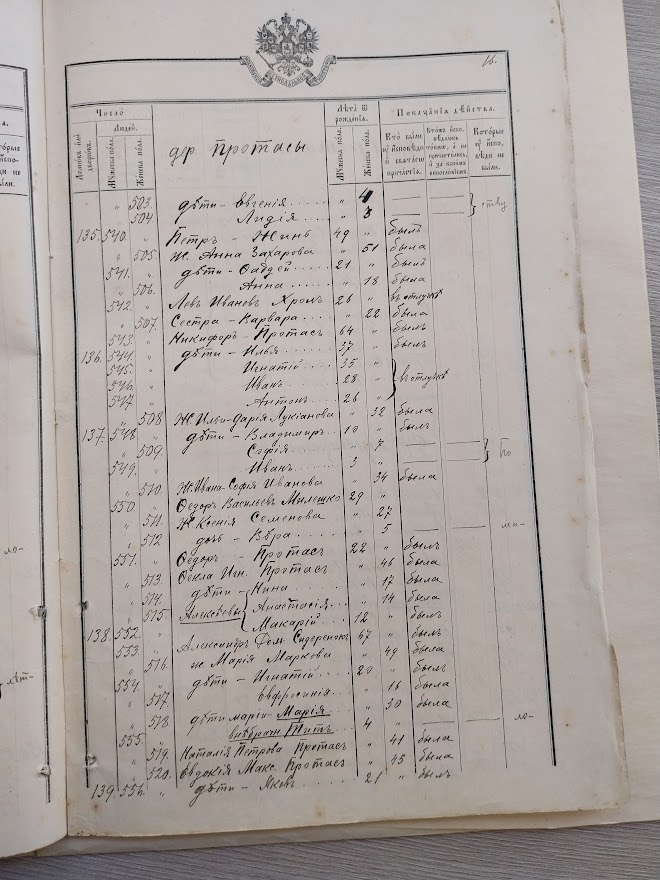 66.
Число
Людей.
Домовъ или дворовъ.
Мужеска пола.
Женска пола.
др Протасы
Лѣта ѿ рожденїя.
Мужеска пола.
Женска пола.
Показанїя дѣйства.
Кто были у исповѣди и святаго причастїя.
Которые у исповѣди не были.
503. дѣти - Евгенія „ 4
504 Лидія „ 3 } ству
135. 540. „ Петръ - Жинь 49 „ былъ
„ 505. Ж. Анна Захарова „ 51 была
541. „ дѣти - Фаддей 21 „ былъ
„ 506. Анна „ 18 была
542. „ Левъ Ивановъ Хромъ 26 „ въ отлучкѣ
„ 507. Сестра - Варвара „ 22 была
543. „ Никифоръ - Протасъ 64 „ былъ
136. 544. „ дѣти - Илья 37 „ былъ
545. „ Игнатій 35 „
546. „ Иванъ 28 „ } въ отлучкѣ
547 „ Антонъ 26 „
„ 508 Ж. Ильи - Дарія Лукіанова „ 32 была
137. 548 „ дѣти - Владимиръ 10 „ былъ
„ 509. Софія „ 7
549. „ Иванъ 3 „ } бо
„ 510 Ж. Ивана - Софія Иванова „ 34 была
550. „ Ѳедоръ Васильевъ Милешко 29 „
„ 511. Ж Ксенія Семенова „ 27
„ 512 дочь - Вѣра „ 5 ма-
551. „ Ѳедоръ - Протасъ 22 „ былъ
„ 513. Ѳекла Игн. Протасъ „ 46 была
„ 514. дѣти - Нина „ 17 была
„ 515. Алексѣевы { Анастасія „ 14 была
138. 552. „ Макарій 12 „ былъ
553 „ Александръ Фом. Сидеренокъ 67 „ былъ
„ 516. ж. Марія Маркова „ 49 была
554. „ дѣти - Игнатій 20 „ былъ
„ 517 Евфросинія „ 16 была
„ 518 дѣти Маріи - Марія „ 30 была
555. „ Титъ 4 „ ло-
„ 519. Наталія Петрова Протасъ „ 41 была
„ 520. Евдокія Макс. Протасъ „ 45 была
139. 556. „ дѣти - Яковъ 21 „ былъ